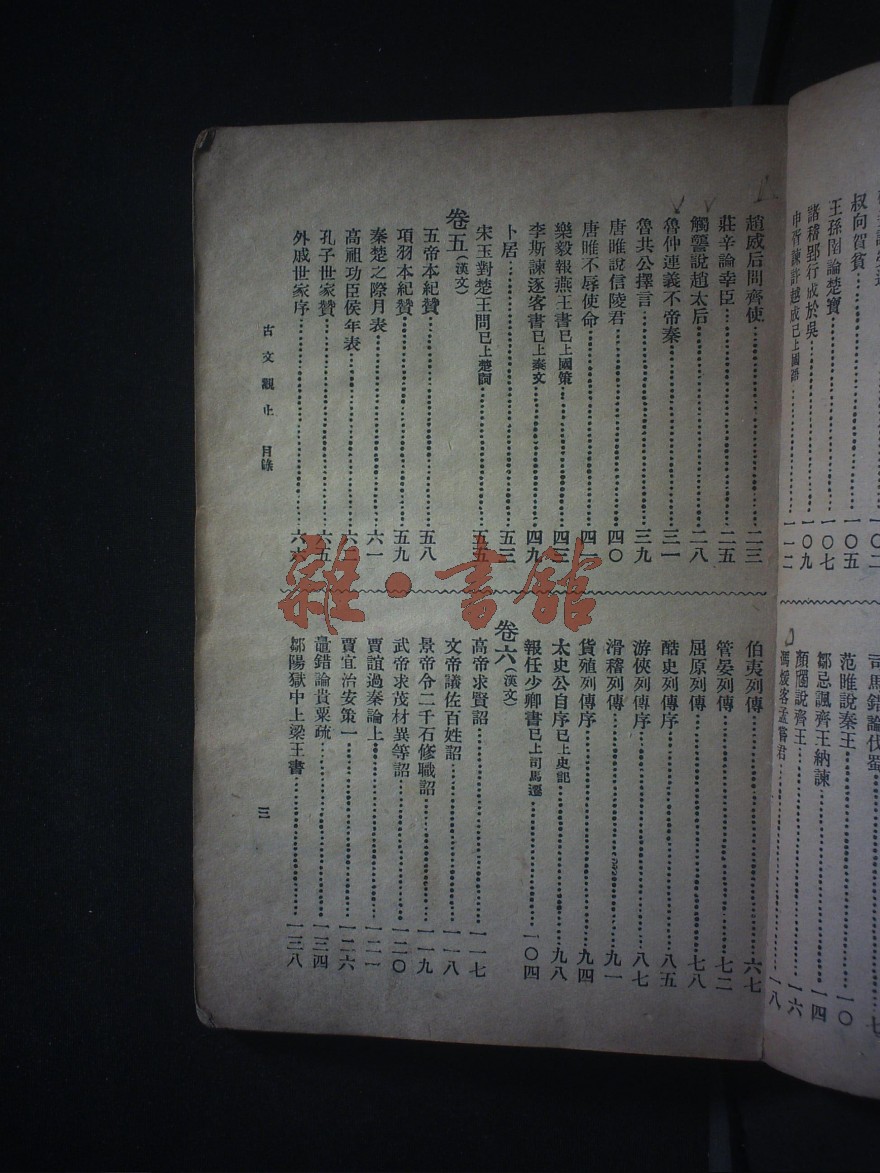 叔向賀貧
一〇五
王孫圉論楚寶
一〇七
諸稽郢行成於吳
一〇九
申胥諫許越成已上國語
一一二
司馬錯論伐蜀
七
范睢說秦王
一〇
鄒忌諷齊王納諫
一四
顏斶說齊王
一六
馮煖客孟嘗君
一八
趙威后問齊使
二三
莊辛論幸臣
二五
觸讋說趙太后
二八
魯仲連義不帝秦
三一
魯共公擇言
三九
唐睢說信陵君
四〇
唐睢不辱使命
四一
樂毅報燕王書已上國策
四三
李斯諫逐客書已上秦文
四九
卜居
五三
宋玉對楚王問已上楚詞
五五
卷五(漢文)
五帝本紀贊
五八
項羽本紀贊
五九
秦楚之際月表
六一
高祖功臣侯年表
六二
孔子世家贊
六五
外戚世家序
六六
伯夷列傳
六七
管晏列傳
七二
屈原列傳
七八
酷史列傳序
八五
游俠列傳序
八七
滑稽列傳
九一
貨殖列傳序
九四
太史公自序已上史記
九八
報任少卿書已上司馬遷
一〇四
卷六(漢文)
高帝求賢詔
一一七
文帝議佐百姓詔
一一八
景帝令二千石修職詔
一一九
武帝求茂材異等詔
一二〇
賈誼過秦論上
一二一
賈誼治安策一
一二六
鼂錯論貴粟疏
一三四
鄒陽獄中上梁王書
一三八
古文觀止 目錄
三
雜·書館